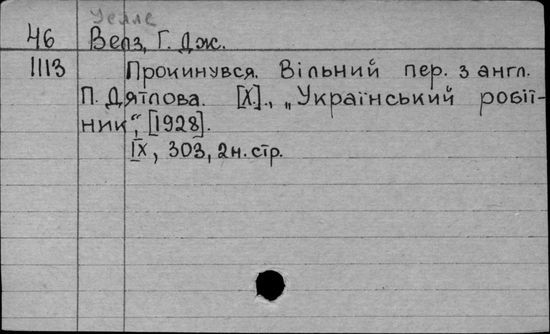 Уеллс
46 Велз, Г. Дж.
1113 Прокинувся. Вільний пер. з англ.
П. Дятлова. [Х]., „Український робіт-
ник“, [1928].
IX, 303, 2н. стр.